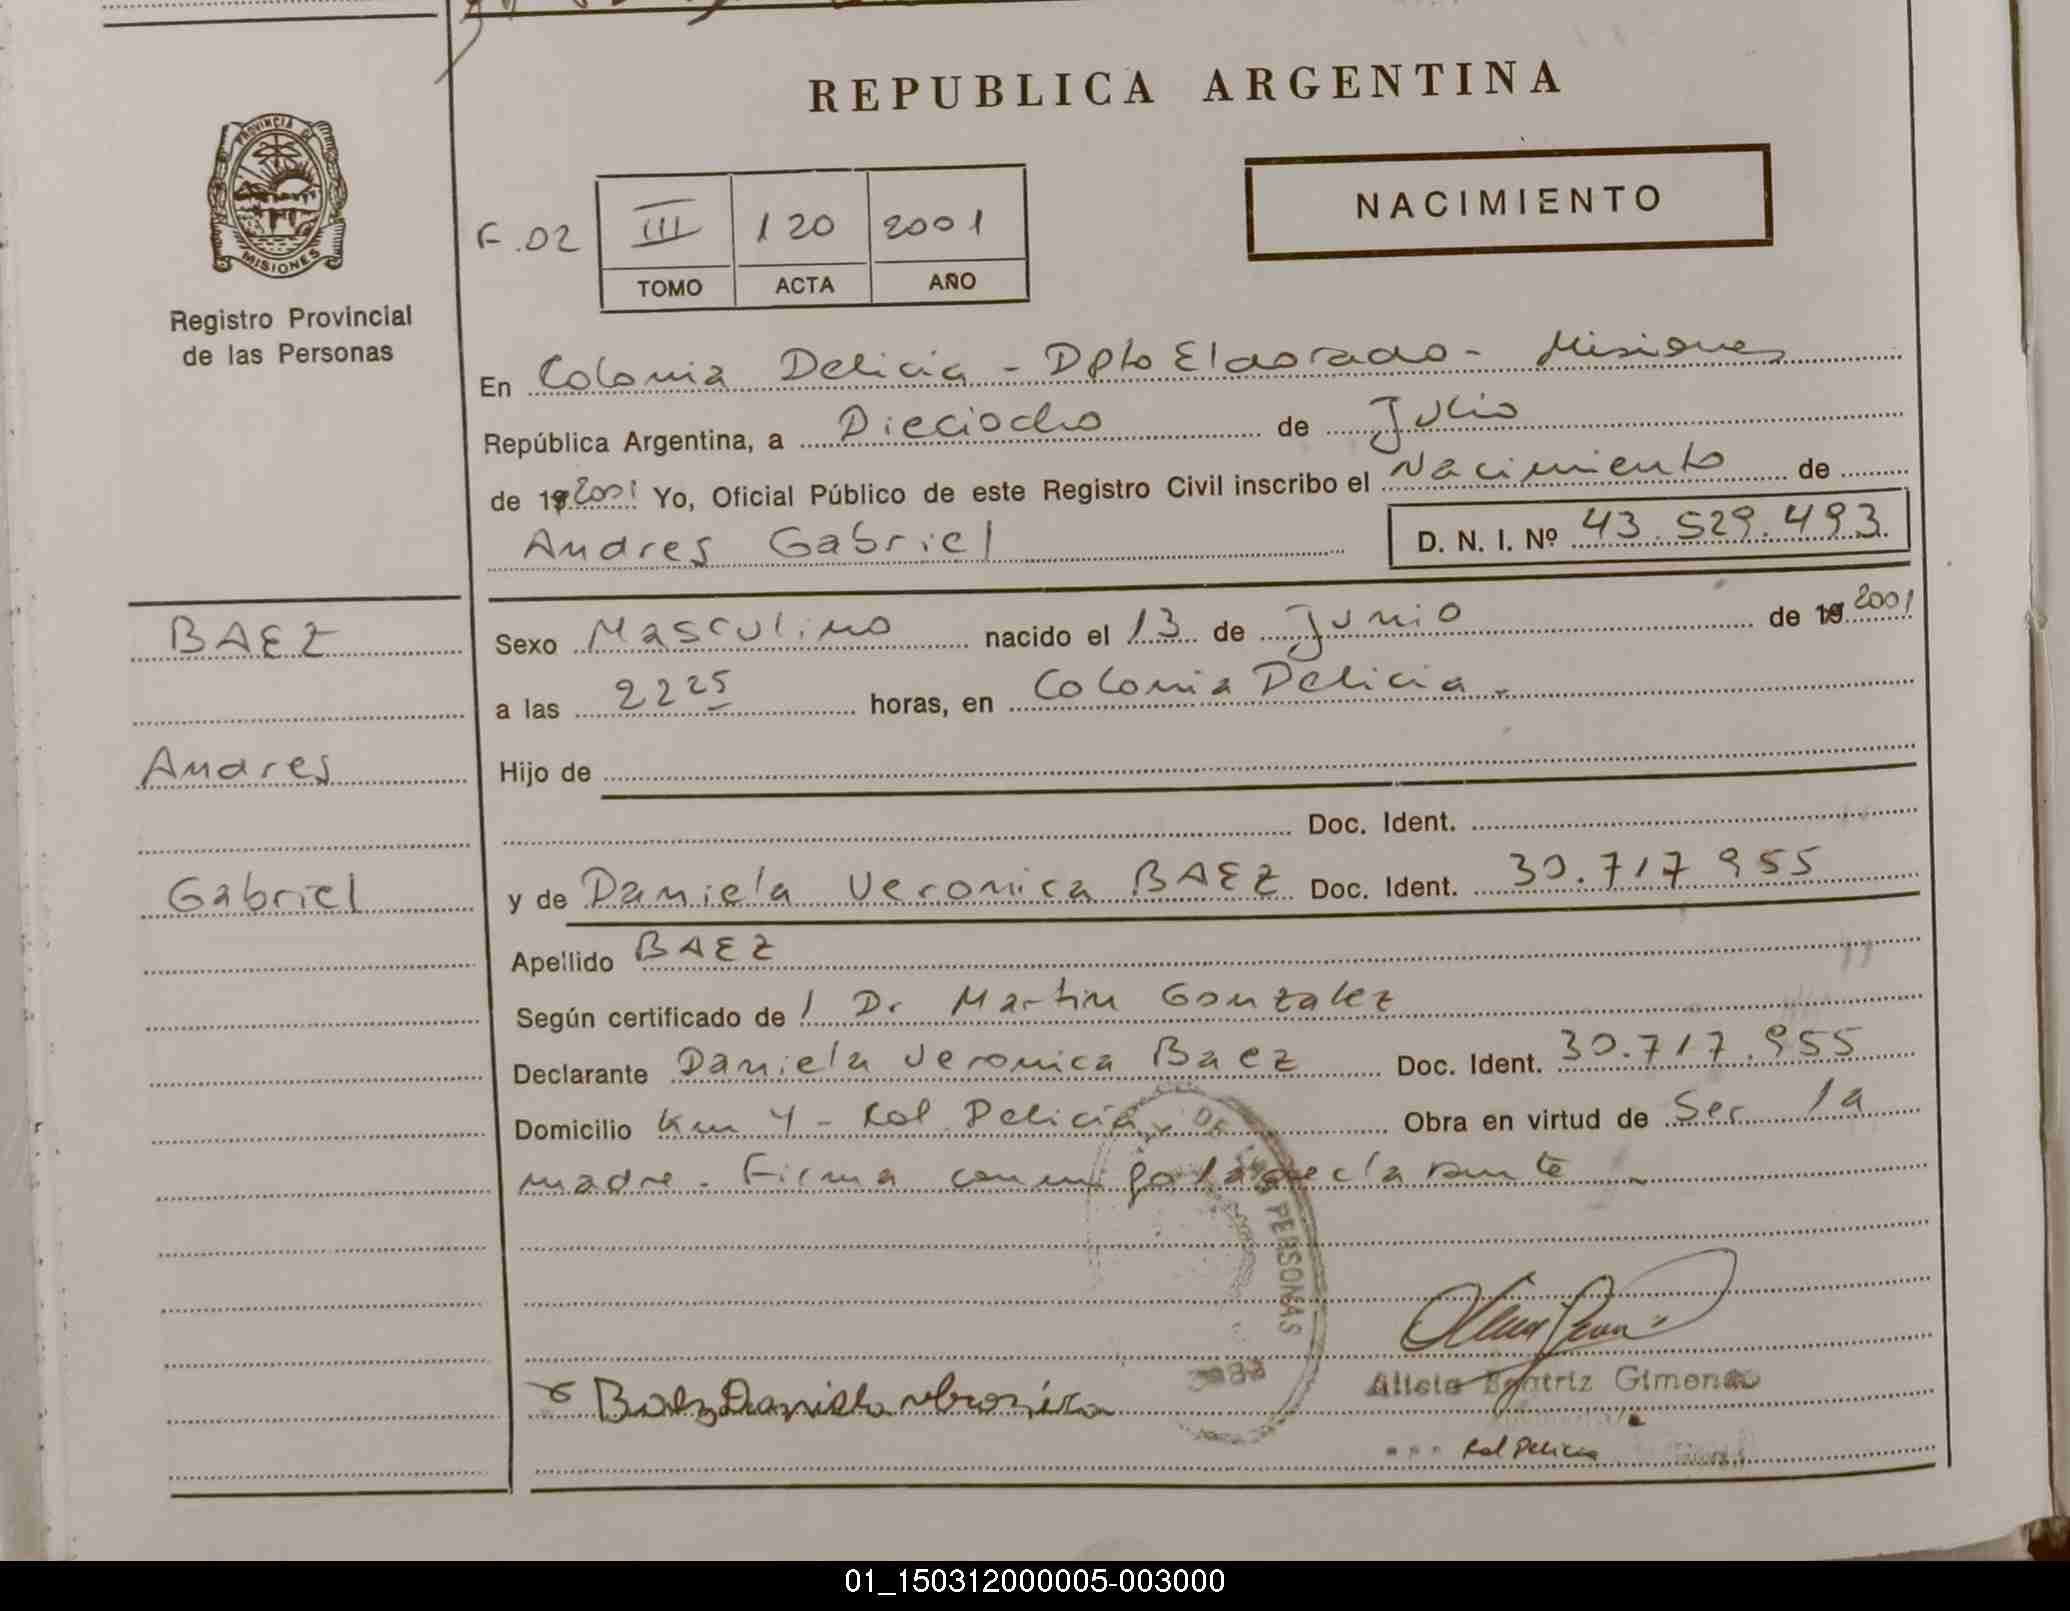 REPUBLICA ARGENTINA
PROVINCIA DE
MISIONES
Registro Provincial
de las Personas
F.02 III 120 2001
TOMO ACTA AÑO
NACIMIENTO
En Colonia Delicia - Dpto Eldorado - Misiones
República Argentina, a Dieciocho de Julio
de 19 2001 Yo, Oficial Público de este Registro Civil inscribo el Nacimiento de
Andres Gabriel D. N. I. Nº 43.529.493
BAEZ
Andres
Gabriel
Sexo Masculino nacido el 13 de Junio de 19 2001
a las 22 25 horas, en Colonia Delicia.
Hijo de
Doc. Ident.
y de Daniela Veronica BAEZ Doc. Ident. 30.717 955
Apellido BAEZ
Según certificado de / Dr Martin Gonzalez
Declarante Daniela Veronica Baez Doc. Ident. 30.717.955
Domicilio Km 4 - Col Delicia Obra en virtud de Ser la
madre. Firma conmigo la declarante
DE LAS PERSONAS
Baez Daniela Veronica
Alicia Beatriz Gimenez
Col Delicia
01_150312000005-003000